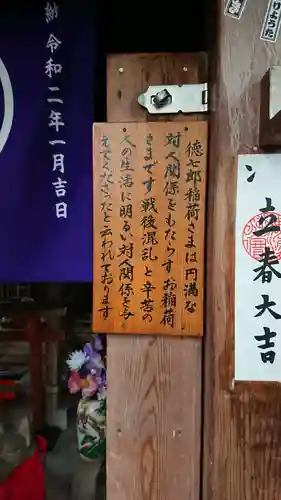 りょうた
立春大吉
徳七郎稲荷さまは円満な
対人関係をもたらすお稲荷
さまです戦後混乱と辛苦の
人の生活に明るい対人関係を与
えてくださったと云われております
納 令和二年一月吉日